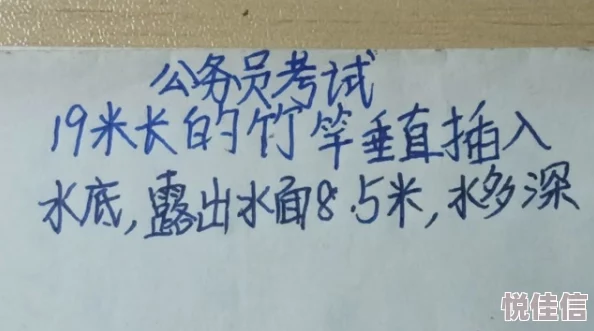 公务员考试
19米长的竹竿垂直插入
水底,露出水面8.5米,水多深
悦佳信